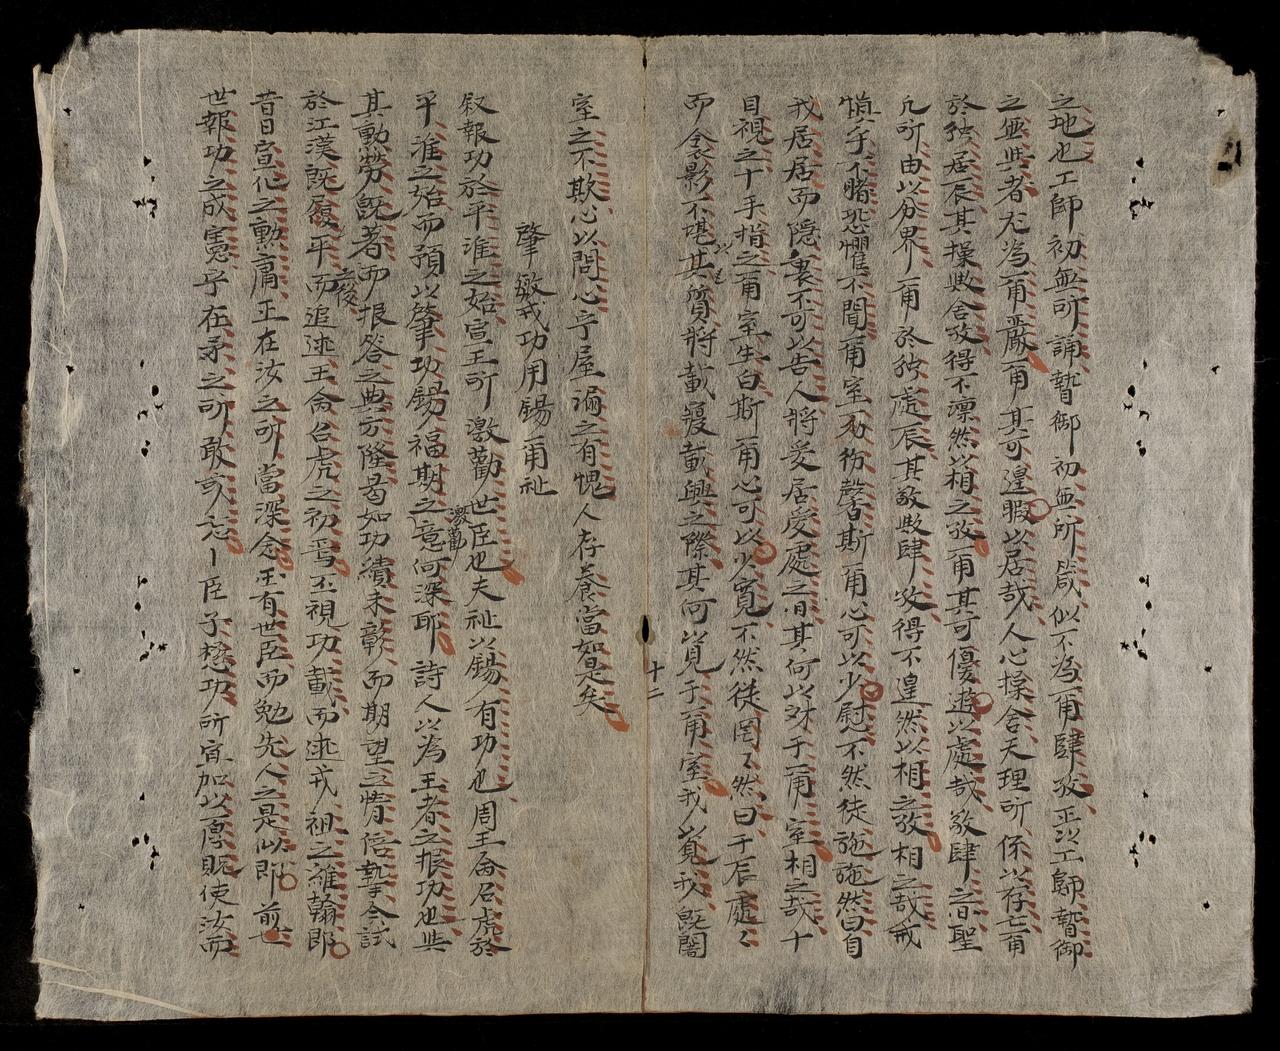 之地也工師初無所誦暬御初無所箴似不為甭肆孜正以工師暬御
之無些者尤為甭嚴甭其可遑暇以居哉人心操舍天理所係以存亡甭
於独居辰其操歟舍孜得不凛然以相之孜甭其可優逰以處哉敬肆之昷聖
凡所由以分界甭於独處辰其敬歟肆孜得不遑然以相之孜相之哉戒
慎乎不睹恐懼不聞甭室有芬馨斯甭心可以少慰不然徒施施然曰自
我居居而隠衷不可以告人將爰居爰處之日其何以対于甭室相之哉十
目視之十手指之甭室生白斯甭心可以少寬不然徒罔々然曰于辰處々
而衾影不堪其質將載寢載興之際其何以覓于甭室我以覓我既闇
十二
室之不欺心以問心宁屋漏之有愧人存養當如是矣
肇敏戎功用錫甭祉
叙報功於平淮之始宣王所激勸世臣也夫祉以錫有功也周王命召虎於
平淮之始而預以肇功錫福期之意何深耶詩人以為王者之报功也些
其勳勞既著而报答之典方隆曷如功績未彰而期望之情倍摯今試
於江漢既履平之後而追迹王命召虎之初焉王視功載而迹戎祖之維翰郎
昔日宣化之勳庸王在汝之所當深念王有世臣而勉先人之是似即前世
世報功之成憲乎在予之所敢或忘丨臣子稽功所宜加以厚貺使汝而
激勸